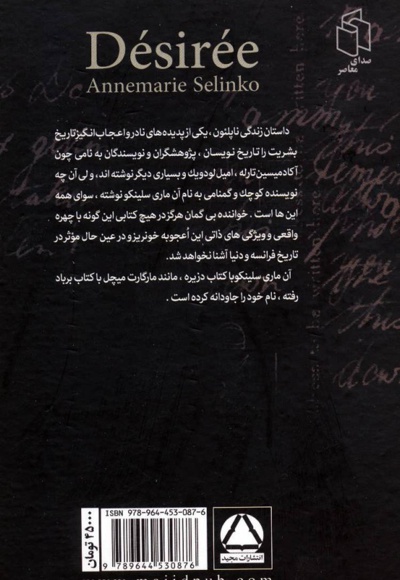 Désirée
Annemarie Selinko
صدای
معاصر
داستان زندگی ناپلئون، یکی از پدیده‌های نادر و اعجاب انگیز تاریخ
بشریت را تاریخ نویسان، پژوهشگران و نویسندگان به نامی چون
آکادمیسین تارله، امیل لودویک و بسیاری دیگر نوشته اند، ولی آن چه
نویسنده کوچک و گمنامی به نام آن ماری سلینکو نوشته، سوای همه
این ها است. خواننده بی گمان هرگز در هیچ کتابی این گونه با چهره
واقعی و ویژگی های ذاتی این اُعجوبه خونریز و در عین حال مؤثر در
تاریخ فرانسه و دنیا آشنا نخواهد شد.
آن ماری سلینکو با کتاب دزیره، مانند مارگارت میچل با کتاب برباد
رفته، نام خود را جاودانه کرده است.
۴۵۰۰۰ تومان
ISBN 978-964-453-087-6
9 789644 530876
انتشارات مجید